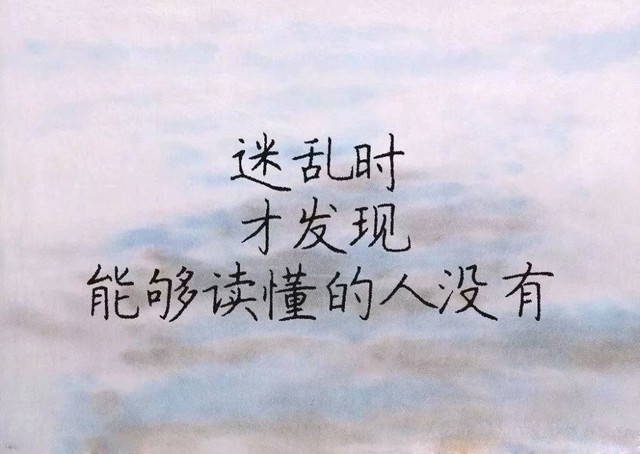 迷乱时
才发现
能够读懂的人没有